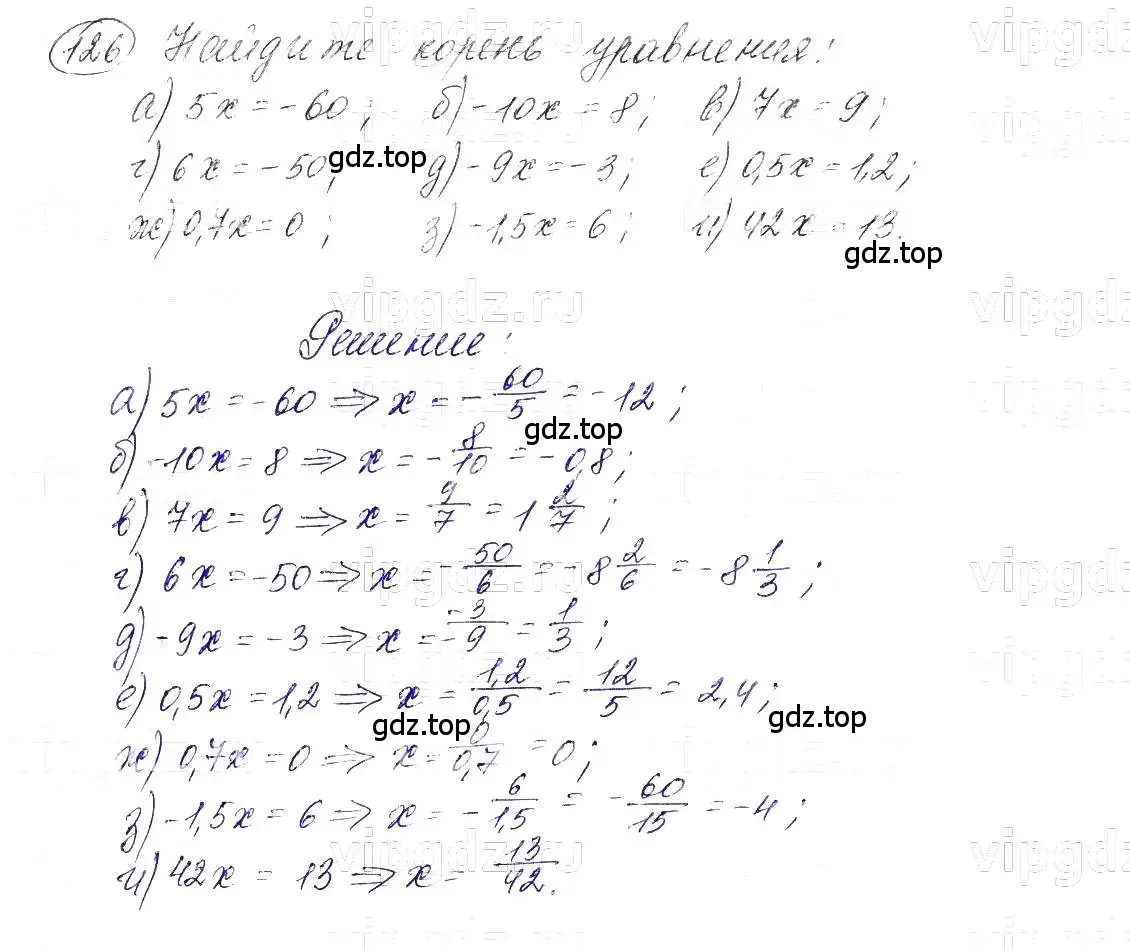 126 Найдите корень уравнения:
а) 5x = -60; б) -10x = 8; в) 7x = 9;
г) 6x = -50; д) -9x = -3; е) 0,5x = 1,2;
ж) 0,7x = 0; з) -1,5x = 6; и) 42x = 13.
Решение:
а) 5x = -60 ⇒ x = -60/5 = -12;
б) -10x = 8 ⇒ x = -8/10 = -0,8;
в) 7x = 9 ⇒ x = 9/7 = 1 2/7;
г) 6x = -50 ⇒ x = -50/6 = -8 2/6 = -8 1/3;
д) -9x = -3 ⇒ x = -3/-9 = 1/3;
е) 0,5x = 1,2 ⇒ x = 1,2/0,5 = 12/5 = 2,4;
ж) 0,7x = 0 ⇒ x = 0/0,7 = 0;
з) -1,5x = 6 ⇒ x = -6/1,5 = -60/15 = -4;
и) 42x = 13 ⇒ x = 13/42.
gdz.top
gdz.top
gdz.top
gdz.top
gdz.top
vipgdz.ru
vipgdz.ru
vipgdz.ru
vipgdz.ru